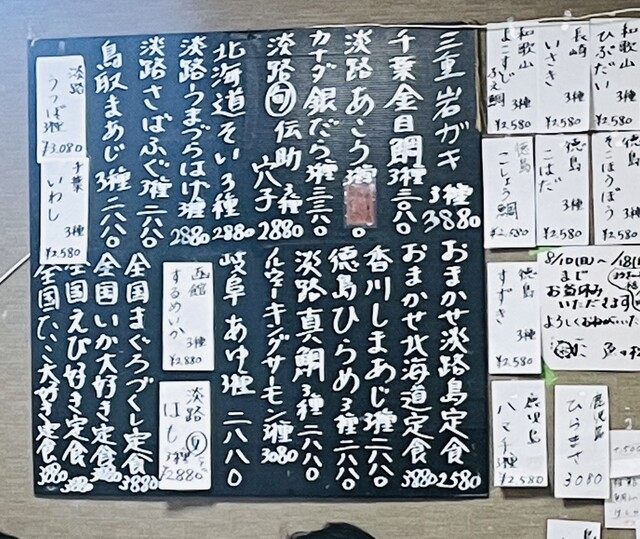 三重岩ガキ 3種 3880
千葉金目鯛 3種 三二八〇
淡路あこう 3種
カナダ銀だら 3種 三三八〇
淡路旬伝助穴子 3種 2880
北海道そい 3種 2880
淡路うまづらはげ 3種 2880
淡路さばふぐ 3種 二六八〇
鳥取まあじ 3種 二六八〇
淡路 うつぼ 3種 ¥3.080
千葉 いわし 3種 ¥2.580
おまかせ淡路島定食 2580
おまかせ北海道定食 3880
香川しまあじ 3種 二六八〇
徳島ひらめ 3種 二八八〇
淡路真鯛 3種 二六八〇
ノルウェーキングサーモン 3種 3080
岐阜あゆ 3種 二八八〇
函館 するめいか 3種 ¥2.880
淡路 はも 旬 3種 ¥2880
全国まぐろづくし定食 3880
全国いか大好き定食 3880
全国えび好き定食 3880
全国たこ大好き定食 3880
和歌山 ひぶだい 3種 ¥2.580
長崎 いさき 3種 ¥2.580
和歌山 3種 ¥2.580
徳島 3種 ¥2.580
徳島 こはだ 3種 ¥2.580
徳島 こしょう鯛 ¥2.580
徳島 すずき 3種 ¥2.580
8/10(日)〜
まで
お盆休み
いただきます
よろしくおねがい
鹿児島 ハマチ 3種 ¥2.580
鹿児島 ひらまさ 3080